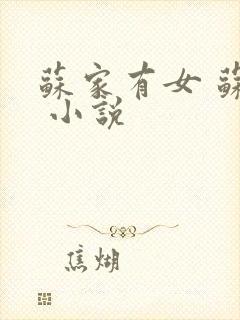 蘇家有女 蘇
小說
焦糊